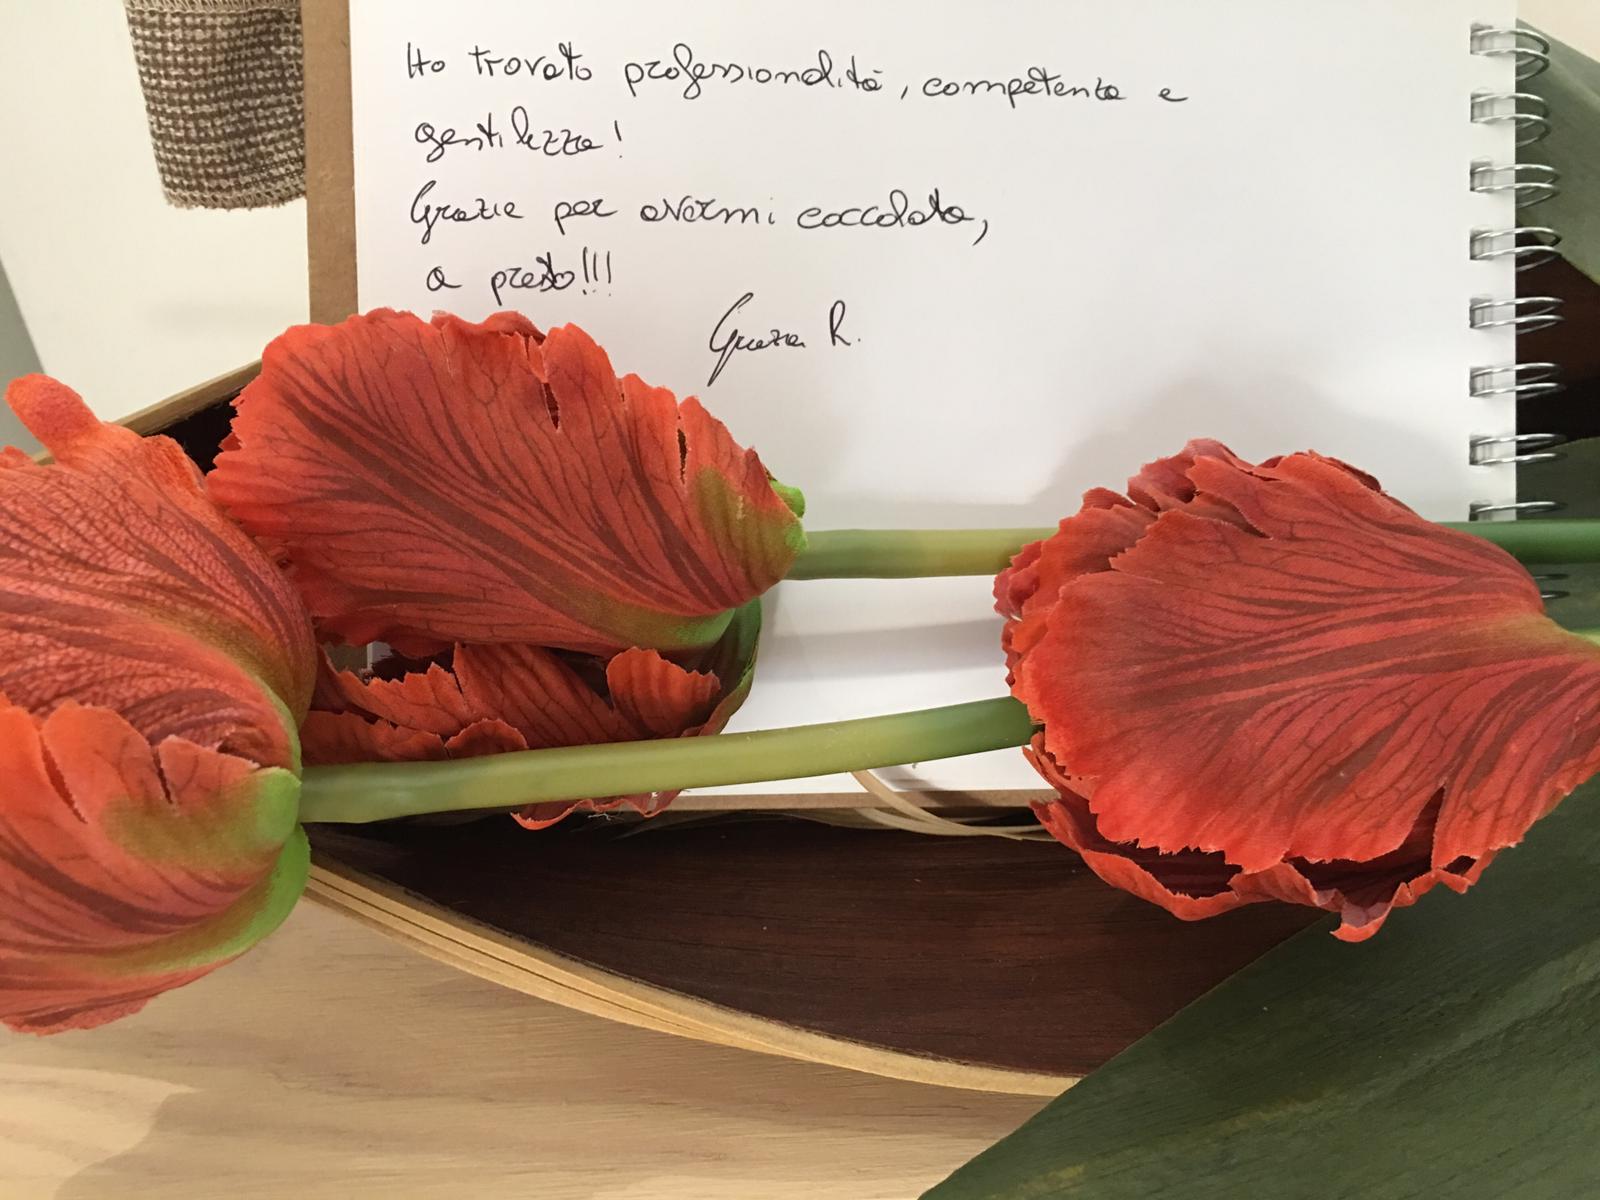 Ho trovato professionalità, competenza e
gentilezza!
Grazie per avermi coccolata,
a presto!!!
Grazia R.